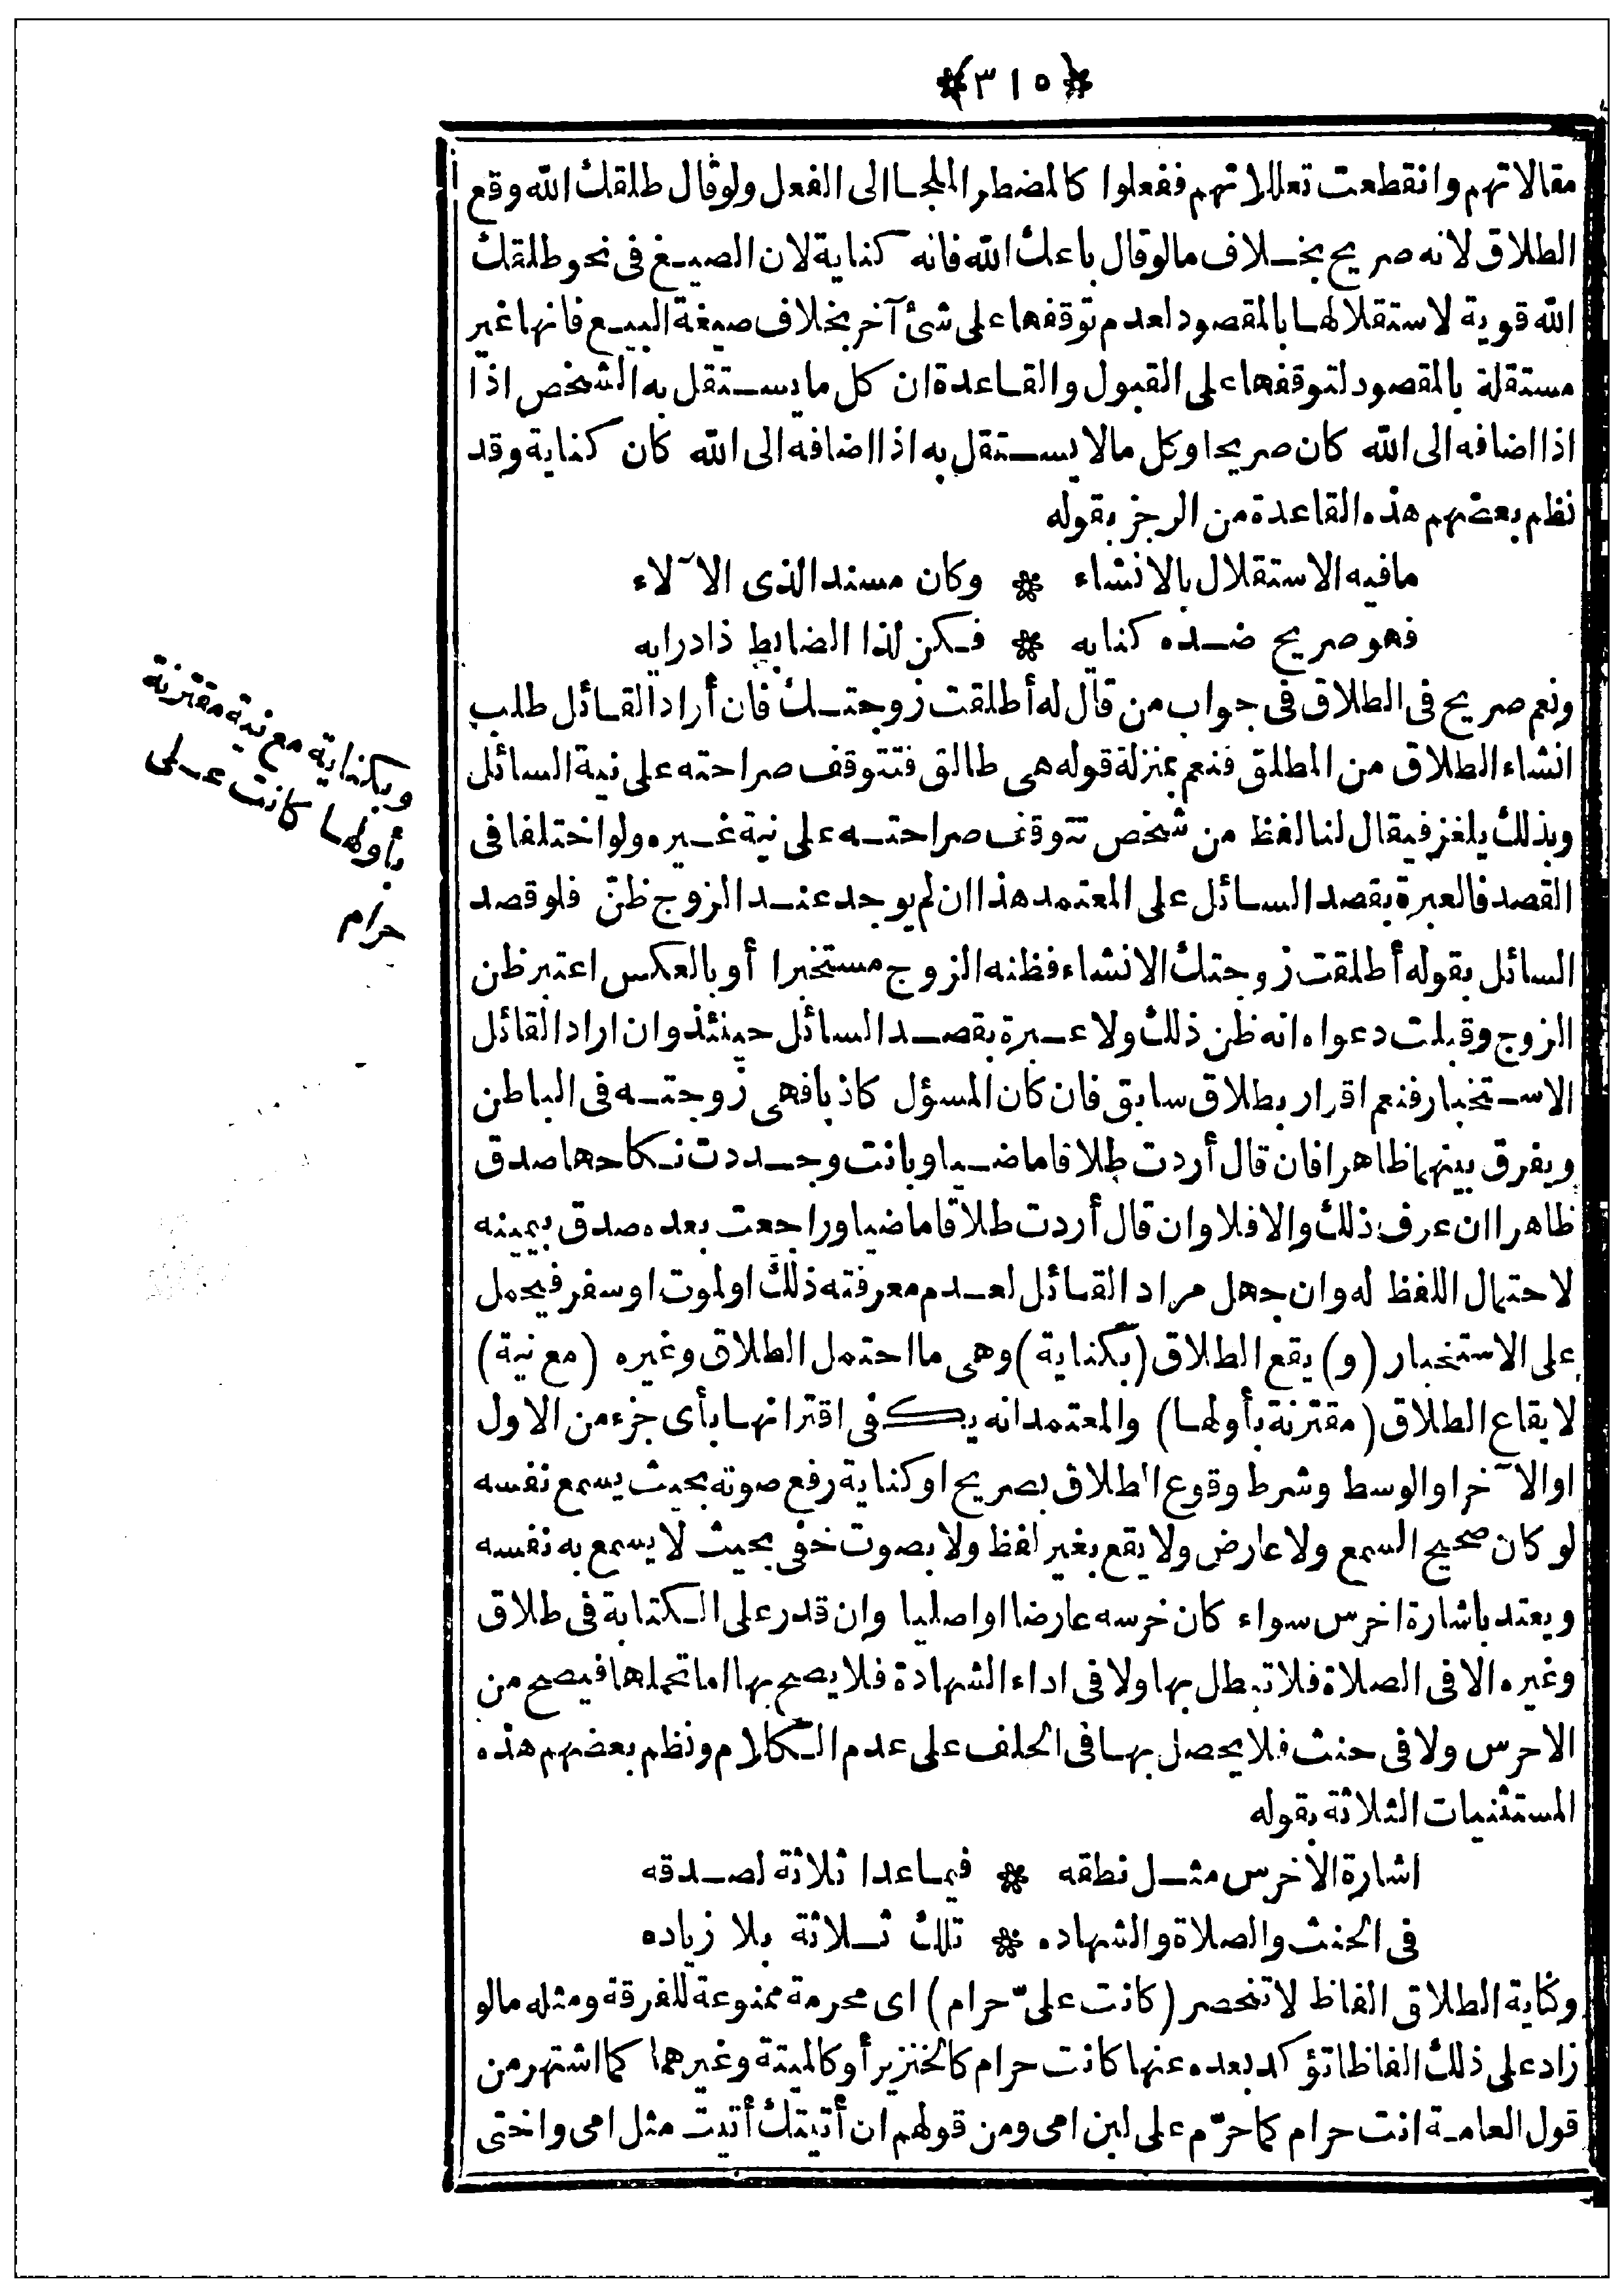 ﴿٣١٥﴾
مقالاتهم وانقطعت تعللاتهم ففعلوا كالمضطر الملجا الى الفعل ولو قال طلقك الله وقع
الطلاق لانه صريح بخلاف مالو قال باعك الله فانه كناية لان الصيغ فى نحو طلقك
الله قوية لاستقلالها بالمقصود لعدم توقفها على شئ آخر بخلاف صيغة البيع فانها غير
مستقلة بالمقصود لتوقفها على القبول والقاعدة ان كل ما يستقل به الشخص اذا
اذا اضافه الى الله كان صريحا وكل مالا يستقل به اذا اضافه الى الله كان كناية وقد
نظم بعضهم هذه القاعدة من الرجز بقوله
مافيه الاستقلال بالانشاء * وكان مسندا لذى الآلاء
فهو صريح ضده كنايه * فكن لذا الضابط ذا درايه
ونعم صريح فى الطلاق فى جواب من قال له أطلقت زوجتك فان أراد القائل طلب
انشاء الطلاق من المطلق فنعم بمنزلة قوله هى طالق فتتوقف صراحته على نية السائل
وبذلك يلغز فيقال لنا لفظ من شخص تتوقف صراحته على نية غيره ولو اختلفا فى
القصد فالعبرة بقصد السائل على المعتمد هذا ان لم يوجد عند الزوج ظنّ فلو قصد
السائل بقوله أطلقت زوجتك الانشاء فظنه الزوج مستخبرا أو بالعكس اعتبر ظن
الزوج وقبلت دعواه انه ظن ذلك ولا عبرة بقصد السائل حينئذ وان اراد القائل
الاستخبار فنعم اقرار بطلاق سابق فان كان المسؤل كاذبا فهى زوجته فى الباطن
ويفرق بينهما ظاهرا فان قال أردت طلاقا ماضيا وبانت وجددت نكاحها صدق
ظاهرا ان عرف ذلك والا فلا وان قال أردت طلاقا ماضيا وراجعت بعده صدق بيمينه
لاحتمال اللفظ له وان جهل مراد القائل لعدم معرفته ذلك او لموت او سفر فيحمل
على الاستخبار (و) يقع الطلاق (بكناية) وهى ما احتمل الطلاق وغيره (مع نية)
لايقاع الطلاق (مقترنة بأولها) والمعتمد انه يكفى اقترانها بأى جزء من الاول
او الآخر او الوسط وشرط وقوع الطلاق بصريح او كناية رفع صوته بحيث يسمع نفسه
لو كان صحيح السمع ولا عارض ولا يقع بغير لفظ ولا بصوت خفى بحيث لا يسمع به نفسه
ويعتد باشارة اخرس سواء كان خرسه عارضا او اصليا وان قدر على الكتابة فى طلاق
وغيره الا فى الصلاة فلا تبطل بها ولا فى اداء الشهادة فلا يصح بها اما تحملها فيصح من
الاخرس ولا فى حنث فلا يحصل بها فى الحلف على عدم الكلام ونظم بعضهم هذه
المستثنيات الثلاثة بقوله
اشارة الأخرس مثل نطقه * فيما عدا ثلاثة لصدقه
فى الحنث والصلاة والشهاده * تلك ثلاثة بلا زياده
وكناية الطلاق الفاظ لا تنحصر (كانت علىّ حرام) اى محرمة ممنوعة للفرقة ومثله مالو
زاد على ذلك الفاظا تؤكد بعده عنها كانت حرام كالخنزير أو كالميتة وغيرهما كما اشتهر من
قول العامة انت حرام كما حرّم على لبن امى ومن قولهم ان أتيتك أتيت مثل امى واختى
وبكناية مع نية مقترنة
بأولها كانت على
حرام